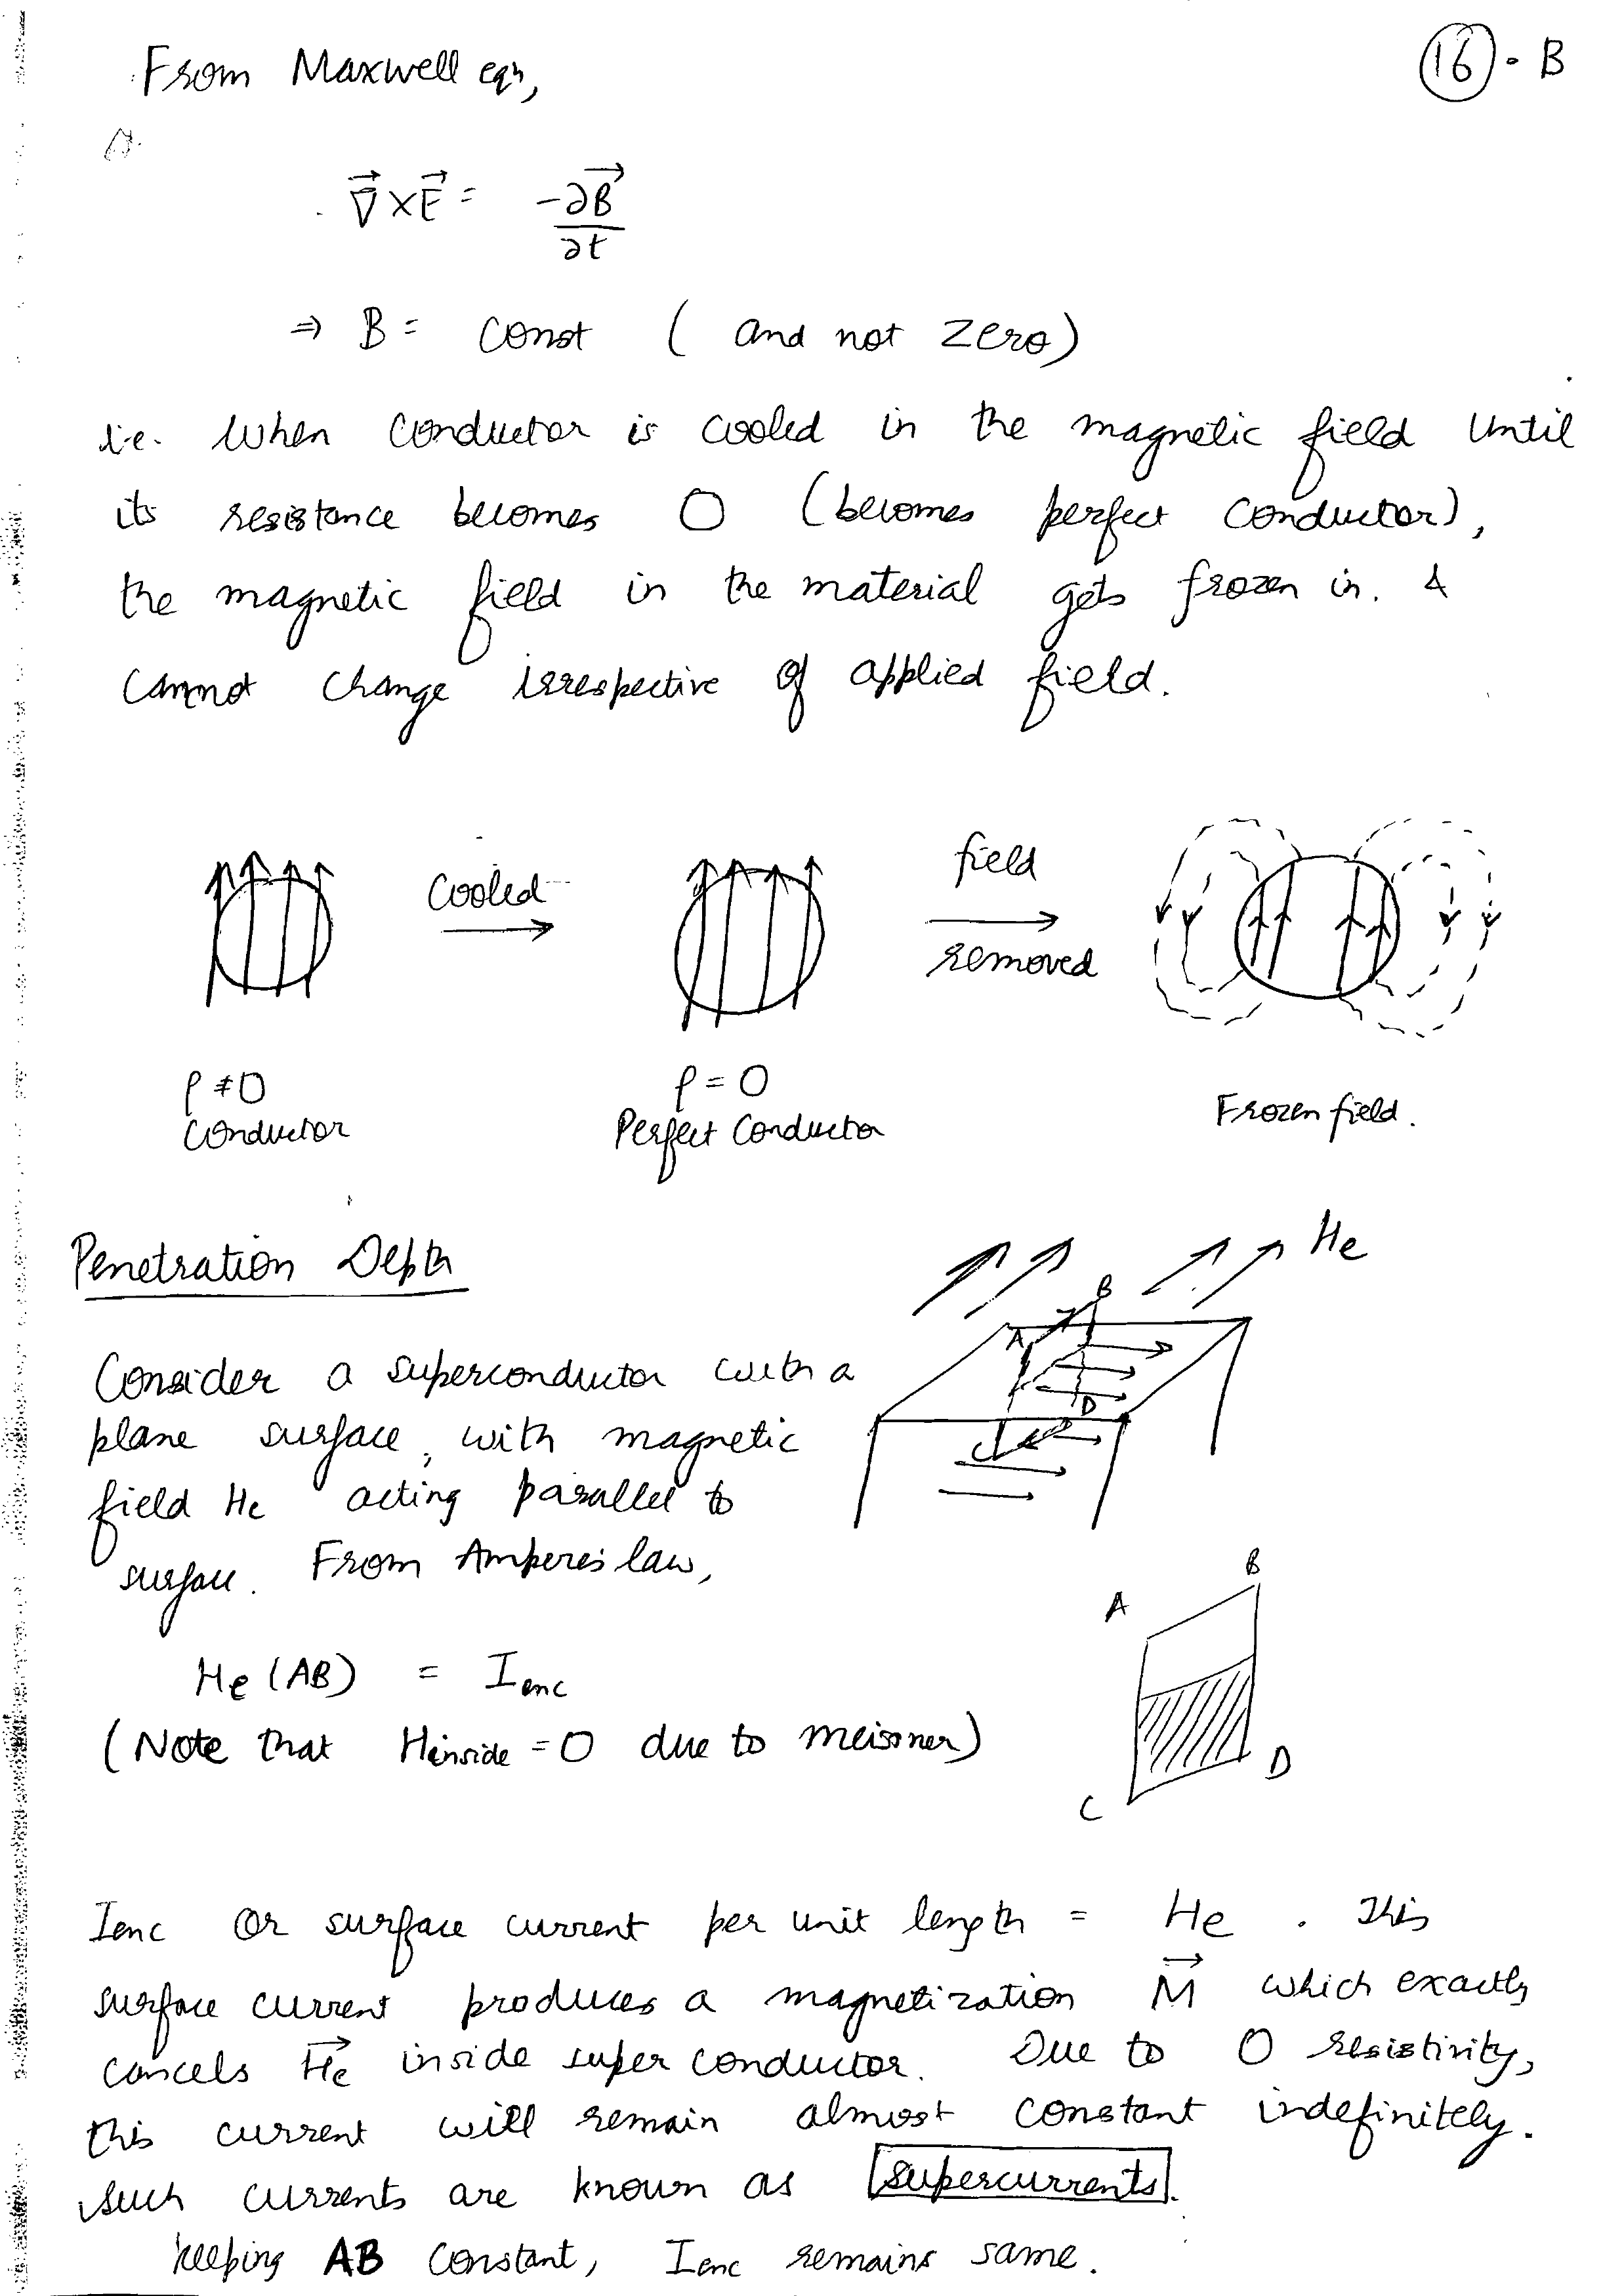 From Maxwell eqn,
(16) - B
∇⃗ × E⃗ = -∂B⃗/∂t
⇒ B = const ( and not zero)
i.e. When conductor is cooled in the magnetic field until
its resistance becomes 0 (becomes perfect conductor),
the magnetic field in the material gets frozen in. &
cannot change irrespective of applied field.
cooled
field
removed
ρ ≠ 0
conductor
ρ = 0
Perfect Conductor
Frozen field.
Penetration Depth
He
B
A
D
C
Consider a superconductor with a
plane surface, with magnetic
field He acting parallel to
surface. From Ampere's law,
B
A
He (AB) = Ienc
(Note that Hinside = 0 due to meissner)
D
C
Ienc or surface current per unit length = He . This
surface current produces a magnetization M⃗ which exactly
cancels H⃗e inside super conductor. Due to 0 resistivity,
this current will remain almost constant indefinitely.
such currents are known as supercurrents.
keeping AB constant, Ienc remains same.